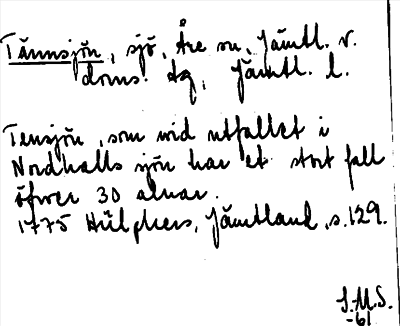 Tännsjön, sjö, Åre sn, Jämtl. v.
doms. tg, Jämtl. l.
Tensjön, som wid utfallet i
Nordhalls sjön har et stort fall
öfwer 30 alnar.
1775 Hülphers, Jämtland, s. 129.
S.M.S.
-61